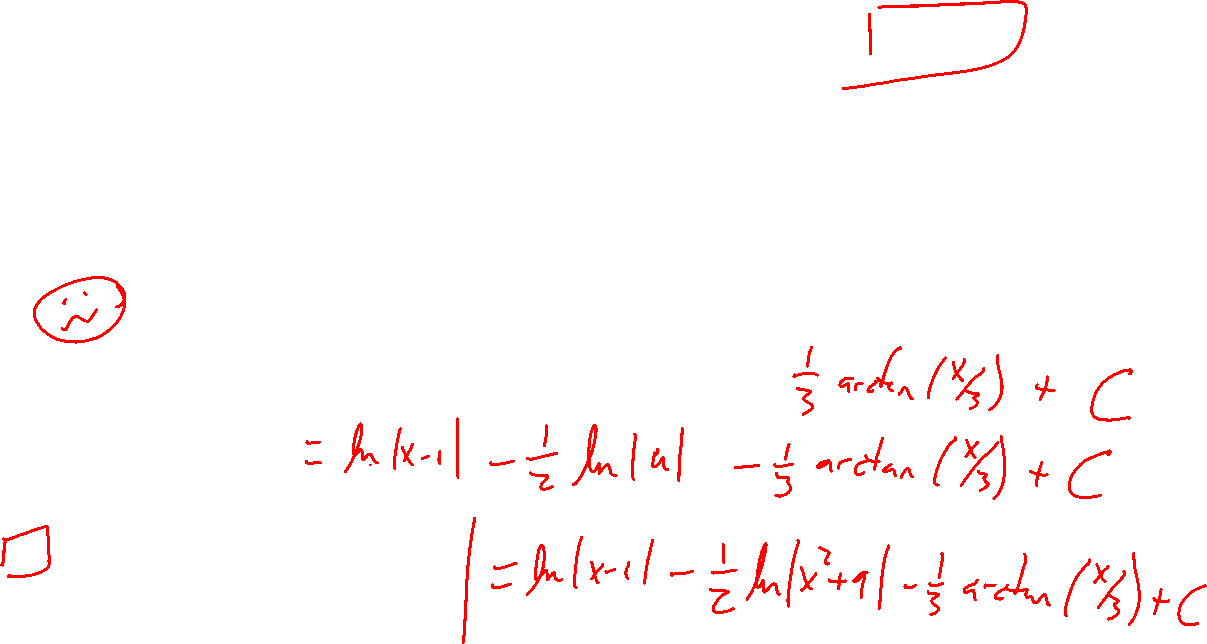 1/3 arctan (x/3) + C
= ln |x-1| - 1/2 ln |u| - 1/3 arctan (x/3) + C
= ln |x-1| - 1/2 ln |x²+9| - 1/3 arctan (x/3) + C